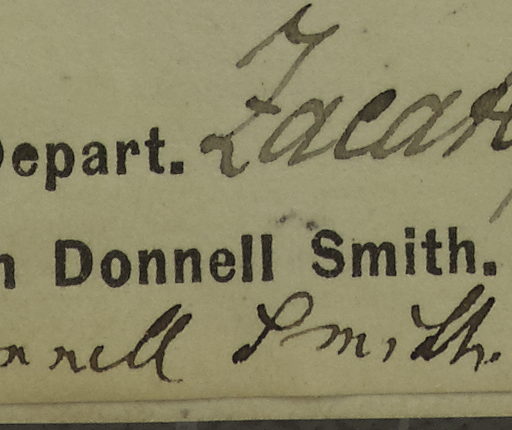 Depart. Zacap
n Donnell Smith.
nnell Smith.